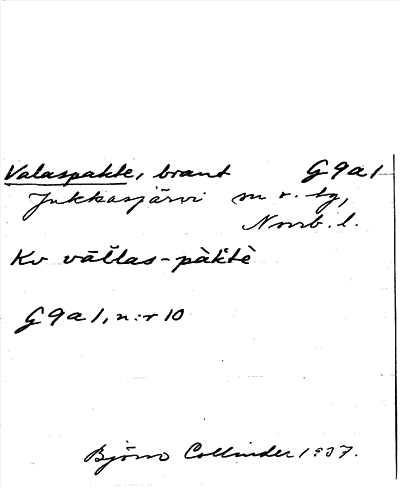 Valaspakte, brant G 9 a 1
Jukkasjärvi
Norrb. l.
Kv vāllas-pàktè
G 9 a 1, n:r 10
Björn Collinder 1937.